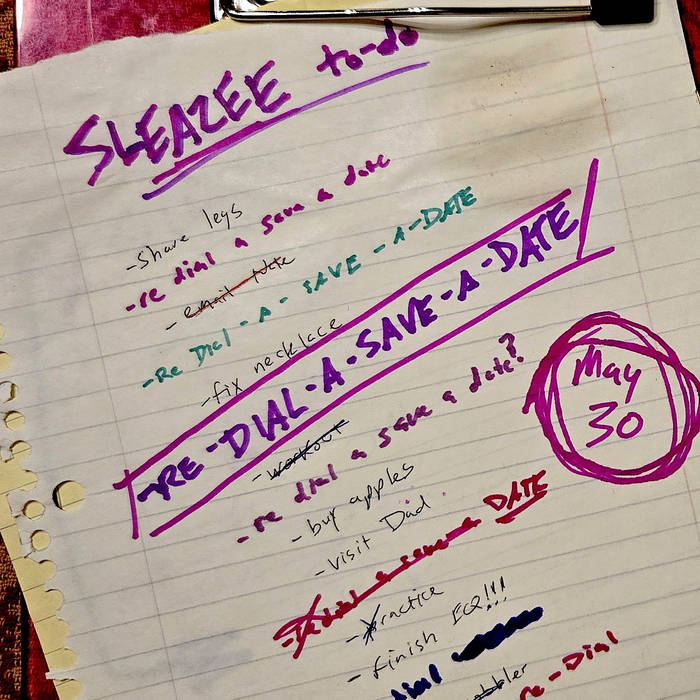 SLEAZEE to-do
- shave legs
- re dial a save a date
- email Nate
- Re Dial - A - SAVE - A - DATE
- fix necklace
- RE-DIAL-A-SAVE-A-DATE
- workout
- re dial a save a date?
May
30
- buy apples
- visit Dad
- re dial a save a DATE
- practice
- finish EQ!!!
dial
re-Dial